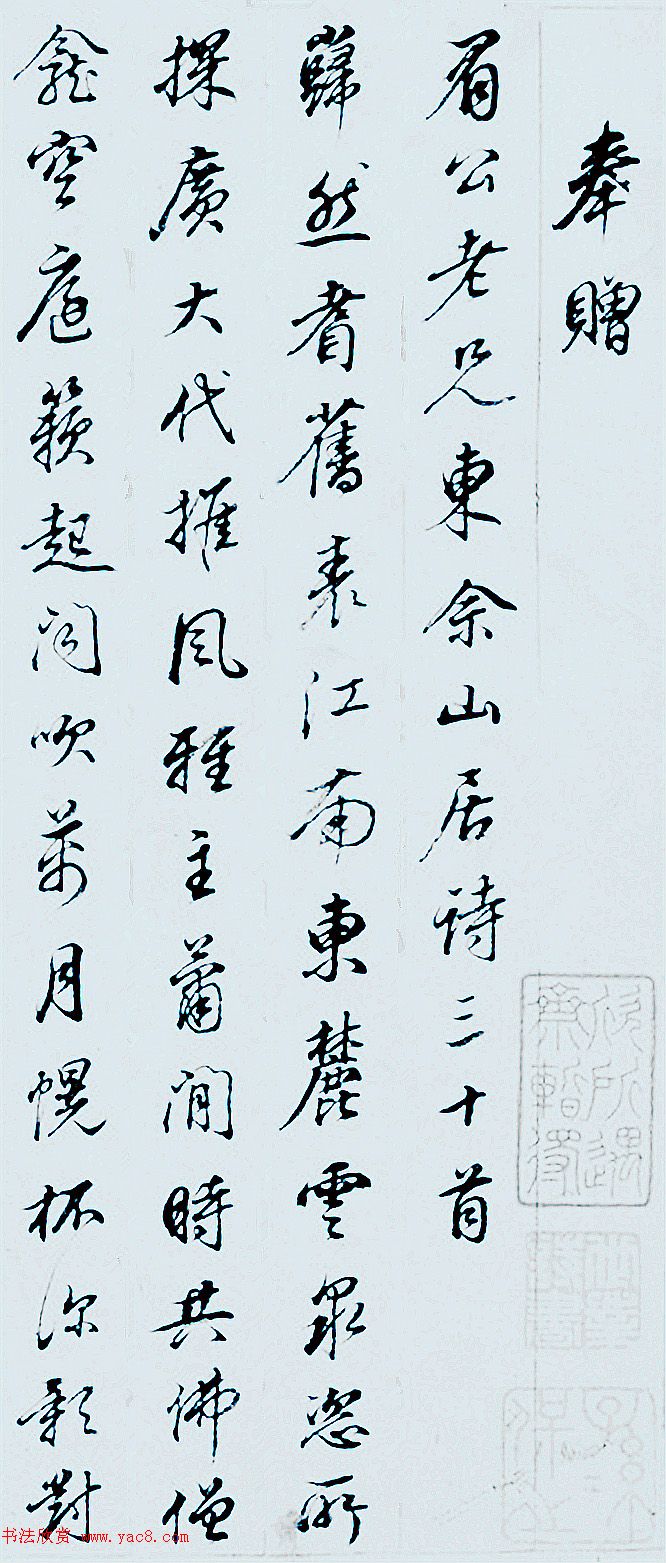 奉贈
眉公老兄東佘山居詩三十首
巋然耆舊表江南東麓雲泉恣所
探廣大代推風雅主蕭閒時共佛僧
龕空庭籟起閒吹萬月幌杯深影對
欣所遇
暫得
书法欣赏 www.yac8.com